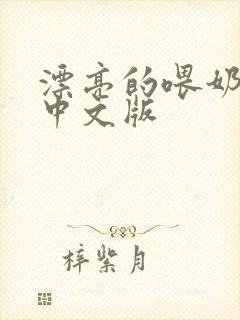 漂亮的喂奶
中文版
梓紫月